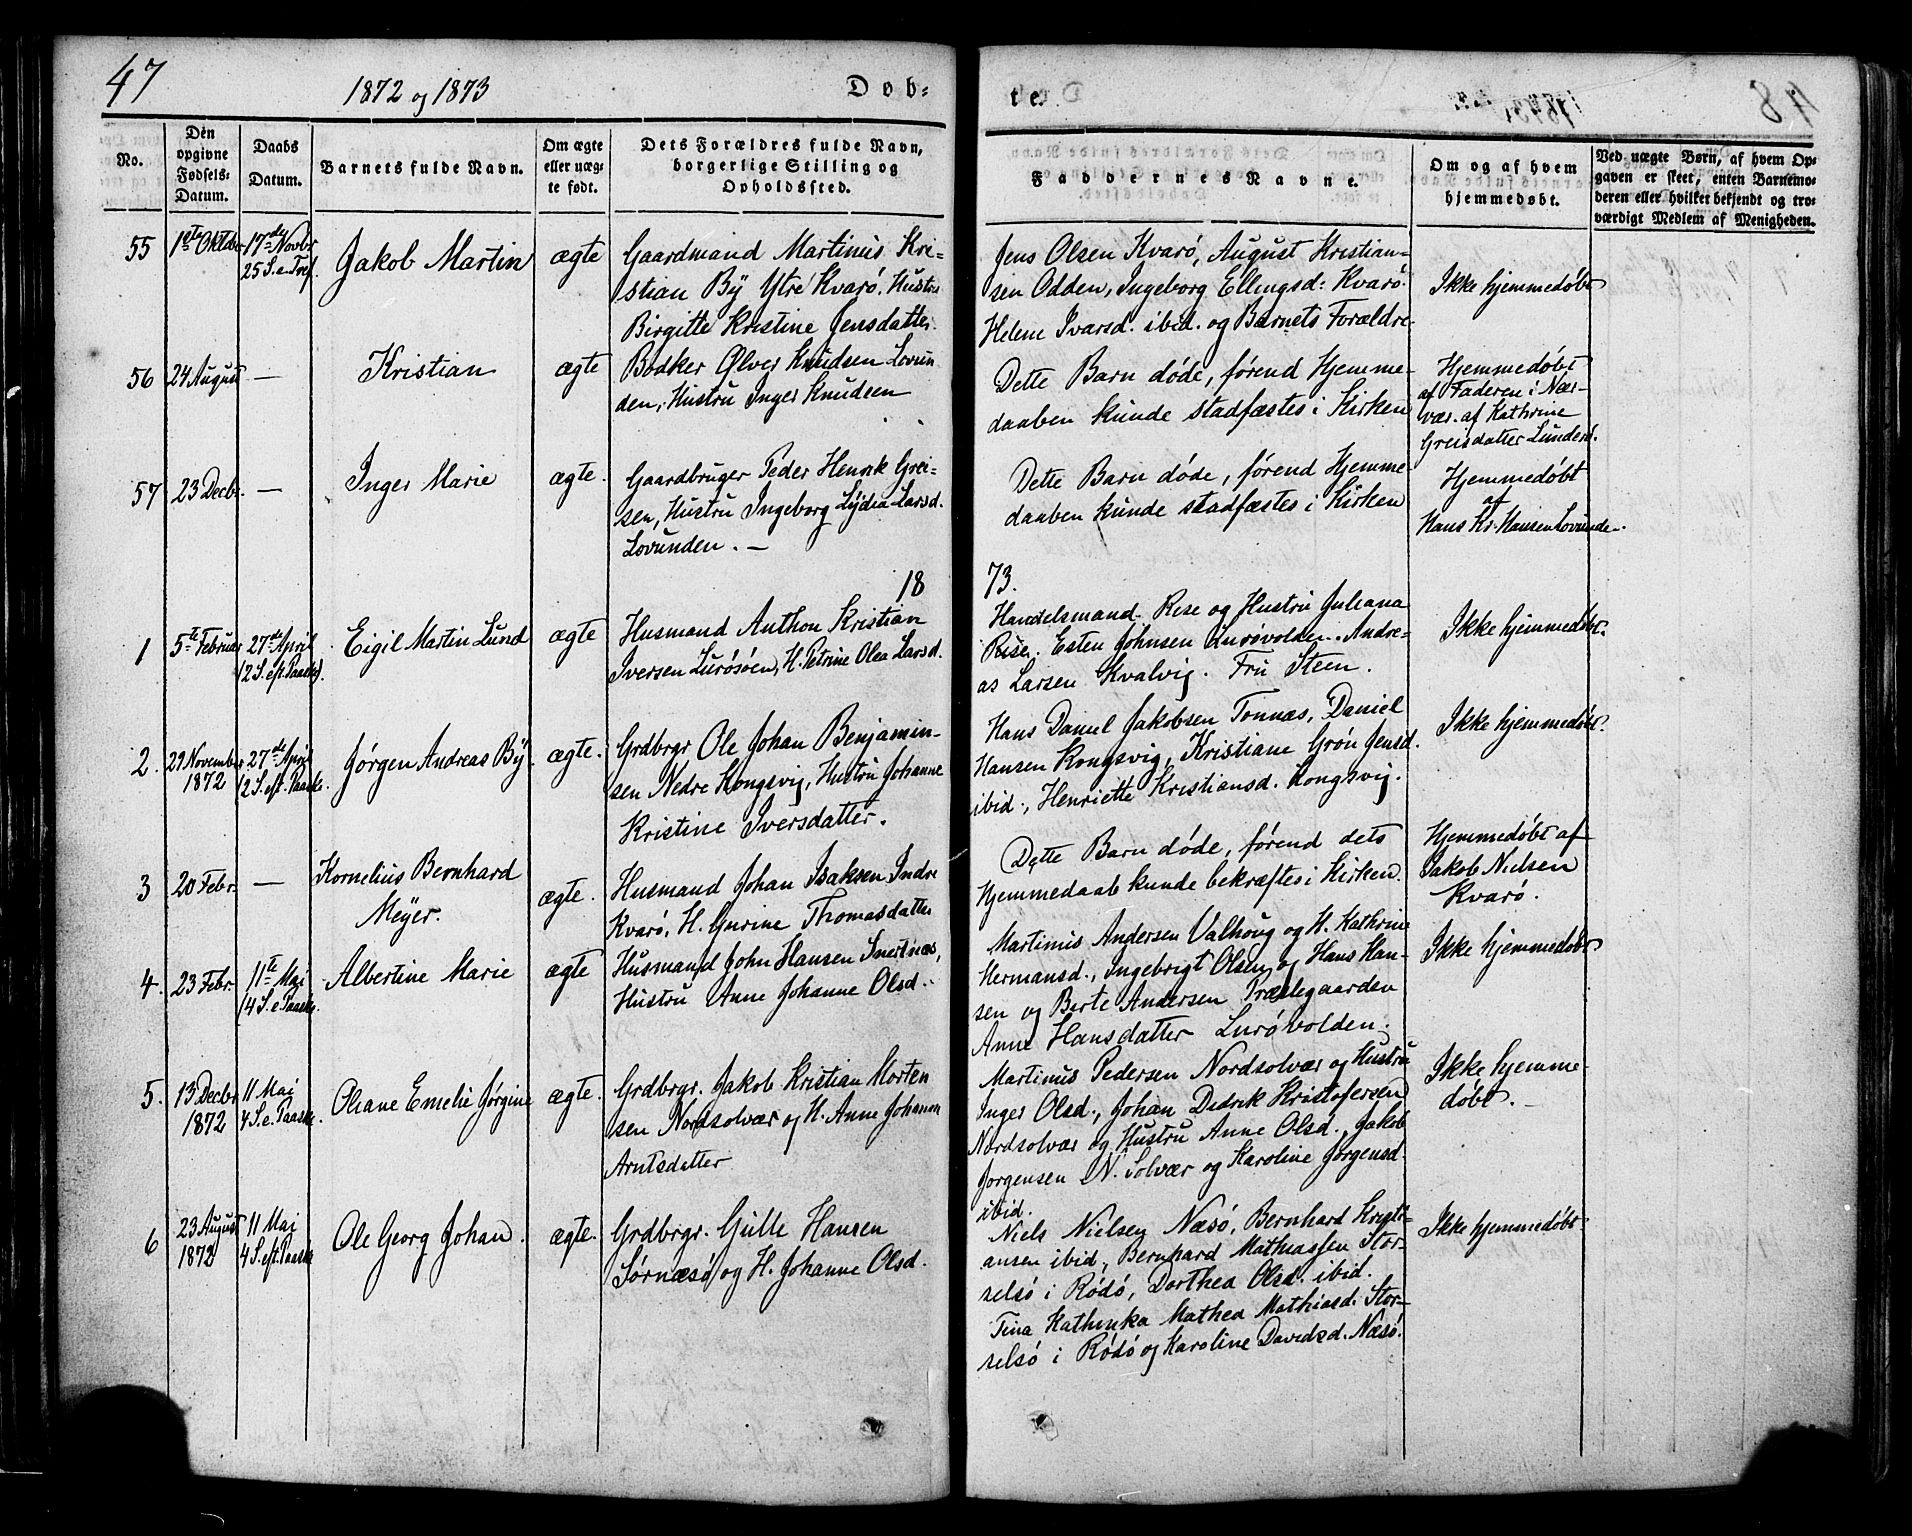 47
1872 og 1873
Døb=
te.
No.
Den opgivne Fødsels-Datum.
Daabs Datum.
Barnets fulde Navn.
Om ægte eller uægte født.
Dets Forældres fulde Navn, borgerlige Stilling og Opholdsfted.
Faddernes Navne.
Om og af hvem hjemmedøbt.
Ved uægte Børn, af hvem Opgaven er skeet, enten Barnemoderen eller hvilket bekjendt og troværdigt Medlem af Menigheden.
55
1ste Oktbr
17de Novbr
25 S. e. Tref.
Jakob Martin
ægte
Gaardmand Martinus Kri-
stian By Ytre Kvarö. Hustru
Birgitte Kristine Jensdatter.
Jens Olsen Kvarö, August Kristian-
sen Odden, Ingeborg Ellingsd: Kvarö.
Helene Ivarsd. ibid. og Barnets Forældre.
Ikke hjemmedøbt
56
24 August
—
Kristian
ægte
Bødker Ølver Knudsen Lovun-
den, Hustru Inger Knudsen
Dette Barn døde, førend Hjemme-
daaben kunde stadfæstes i Kirken
Hjemmedøbt
af Faderen i Nær-
vær. af Kathrine
Greisdatter Lunderö.
57
23 Decbr.
—
Inger Marie
ægte.
Gaardbruger Peder Henrik Grei-
sen, Hustru Ingeborg Lydia Larsd.
Lovunden. —
Dette Barn døde, førend Hjemme-
daaben kunde stadfæstes i Kirken
Hjemmedøbt
af
Hans Kr. Hansen Lovunde-.
18
73.
1
5te Februar
27de April
(2 S. eft. Paaske).
Eigil Martin Lund
ægte
Husmand Anthon Kristian
Iversen Lurösöen, H. Petrine Olea Larsd.
Handelsmand Rise og Hustru Juliana
Rise. Esten Johnsen Lurövolden. Andre-
as Larsen Kvalvig. Fru Steen.
Ikke hjemmedøbt.
2.
29 November
1872
27de April
(2 S. eft. Paaske.
Jørgen Andreas By.
ægte.
Grdbrgr Ole Johan Benjamin-
sen Nedre Kongsvig, Hustru Johanne
Kristine Iversdatter.
Hans Daniel Jakobsen Tonnæs, Daniel
Hansen Kongsvig, Kristiane Grøn Jensd.
ibid., Henriette Kristiansd. Kongsvig.
Ikke hjemmedøbt.
3
20 Febr.
—
Kornelius Bernhard
Meyer.
ægte.
Husmand Johan Isaksen Indre
Kvarö, H. Gurine Thomasdatter
Dette Barn døde, førend dets
Hjemmedaab kunde bekræftes i Kirken.
Hjemmedøbt af
Jakob Nielsen
Kvarö.
4.
23 Febr.
11te Mai
(4 S. e. Paaske.
Albertine Marie
ægte
Husmand John Hansen Snertnæs,
Hustru Anne Johanne Olsd.
Martinus Andersen Valhoug og H. Kathrine
Hermansd., Ingebrigt Olsen og Hans Han-
sen og Berte Andersen Præstegaarden
Anne Hansdatter Lurövolden.
Ikke hjemmedøbt
5.
13 Decbr
1872
11 Mai
4 S. e. Paaske.
Oliane Emelie Jørgine
ægte.
Grdbrgr. Jakob Kristian Morten
sen Nordsolvær og H. Anne Johanne
Arntsdatter
Martinus Pedersen Nordsolvær og Hustru
Inger Olsd., Johan Didrik Kristofersen
Nordsolvær og Hustru Anne Olsd. Jakob
Jørgensen N. Solvær og Karoline Jørgensd.
ibid.
Ikke hjemme-
døbt. —
6
23 August
1872
11 Mai
4 S. eft. Paaske
Ole Georg Johan.
ægte.
Grdbrgr. Gulle Hansen
Sørnæsö og H. Johanne Olsd.
Niels Nielsen Næsö, Bernhard Kristi-
ansen ibid, Bernhard Mathiassen Stor-
selsö i Rödö, Dorthea Olsd. ibid.
Tina Kathinka Mathea Mathiasd. Stor-
selsö i Rödö og Karoline Davidsd. Næsö.
Ikke hjemmedøbt